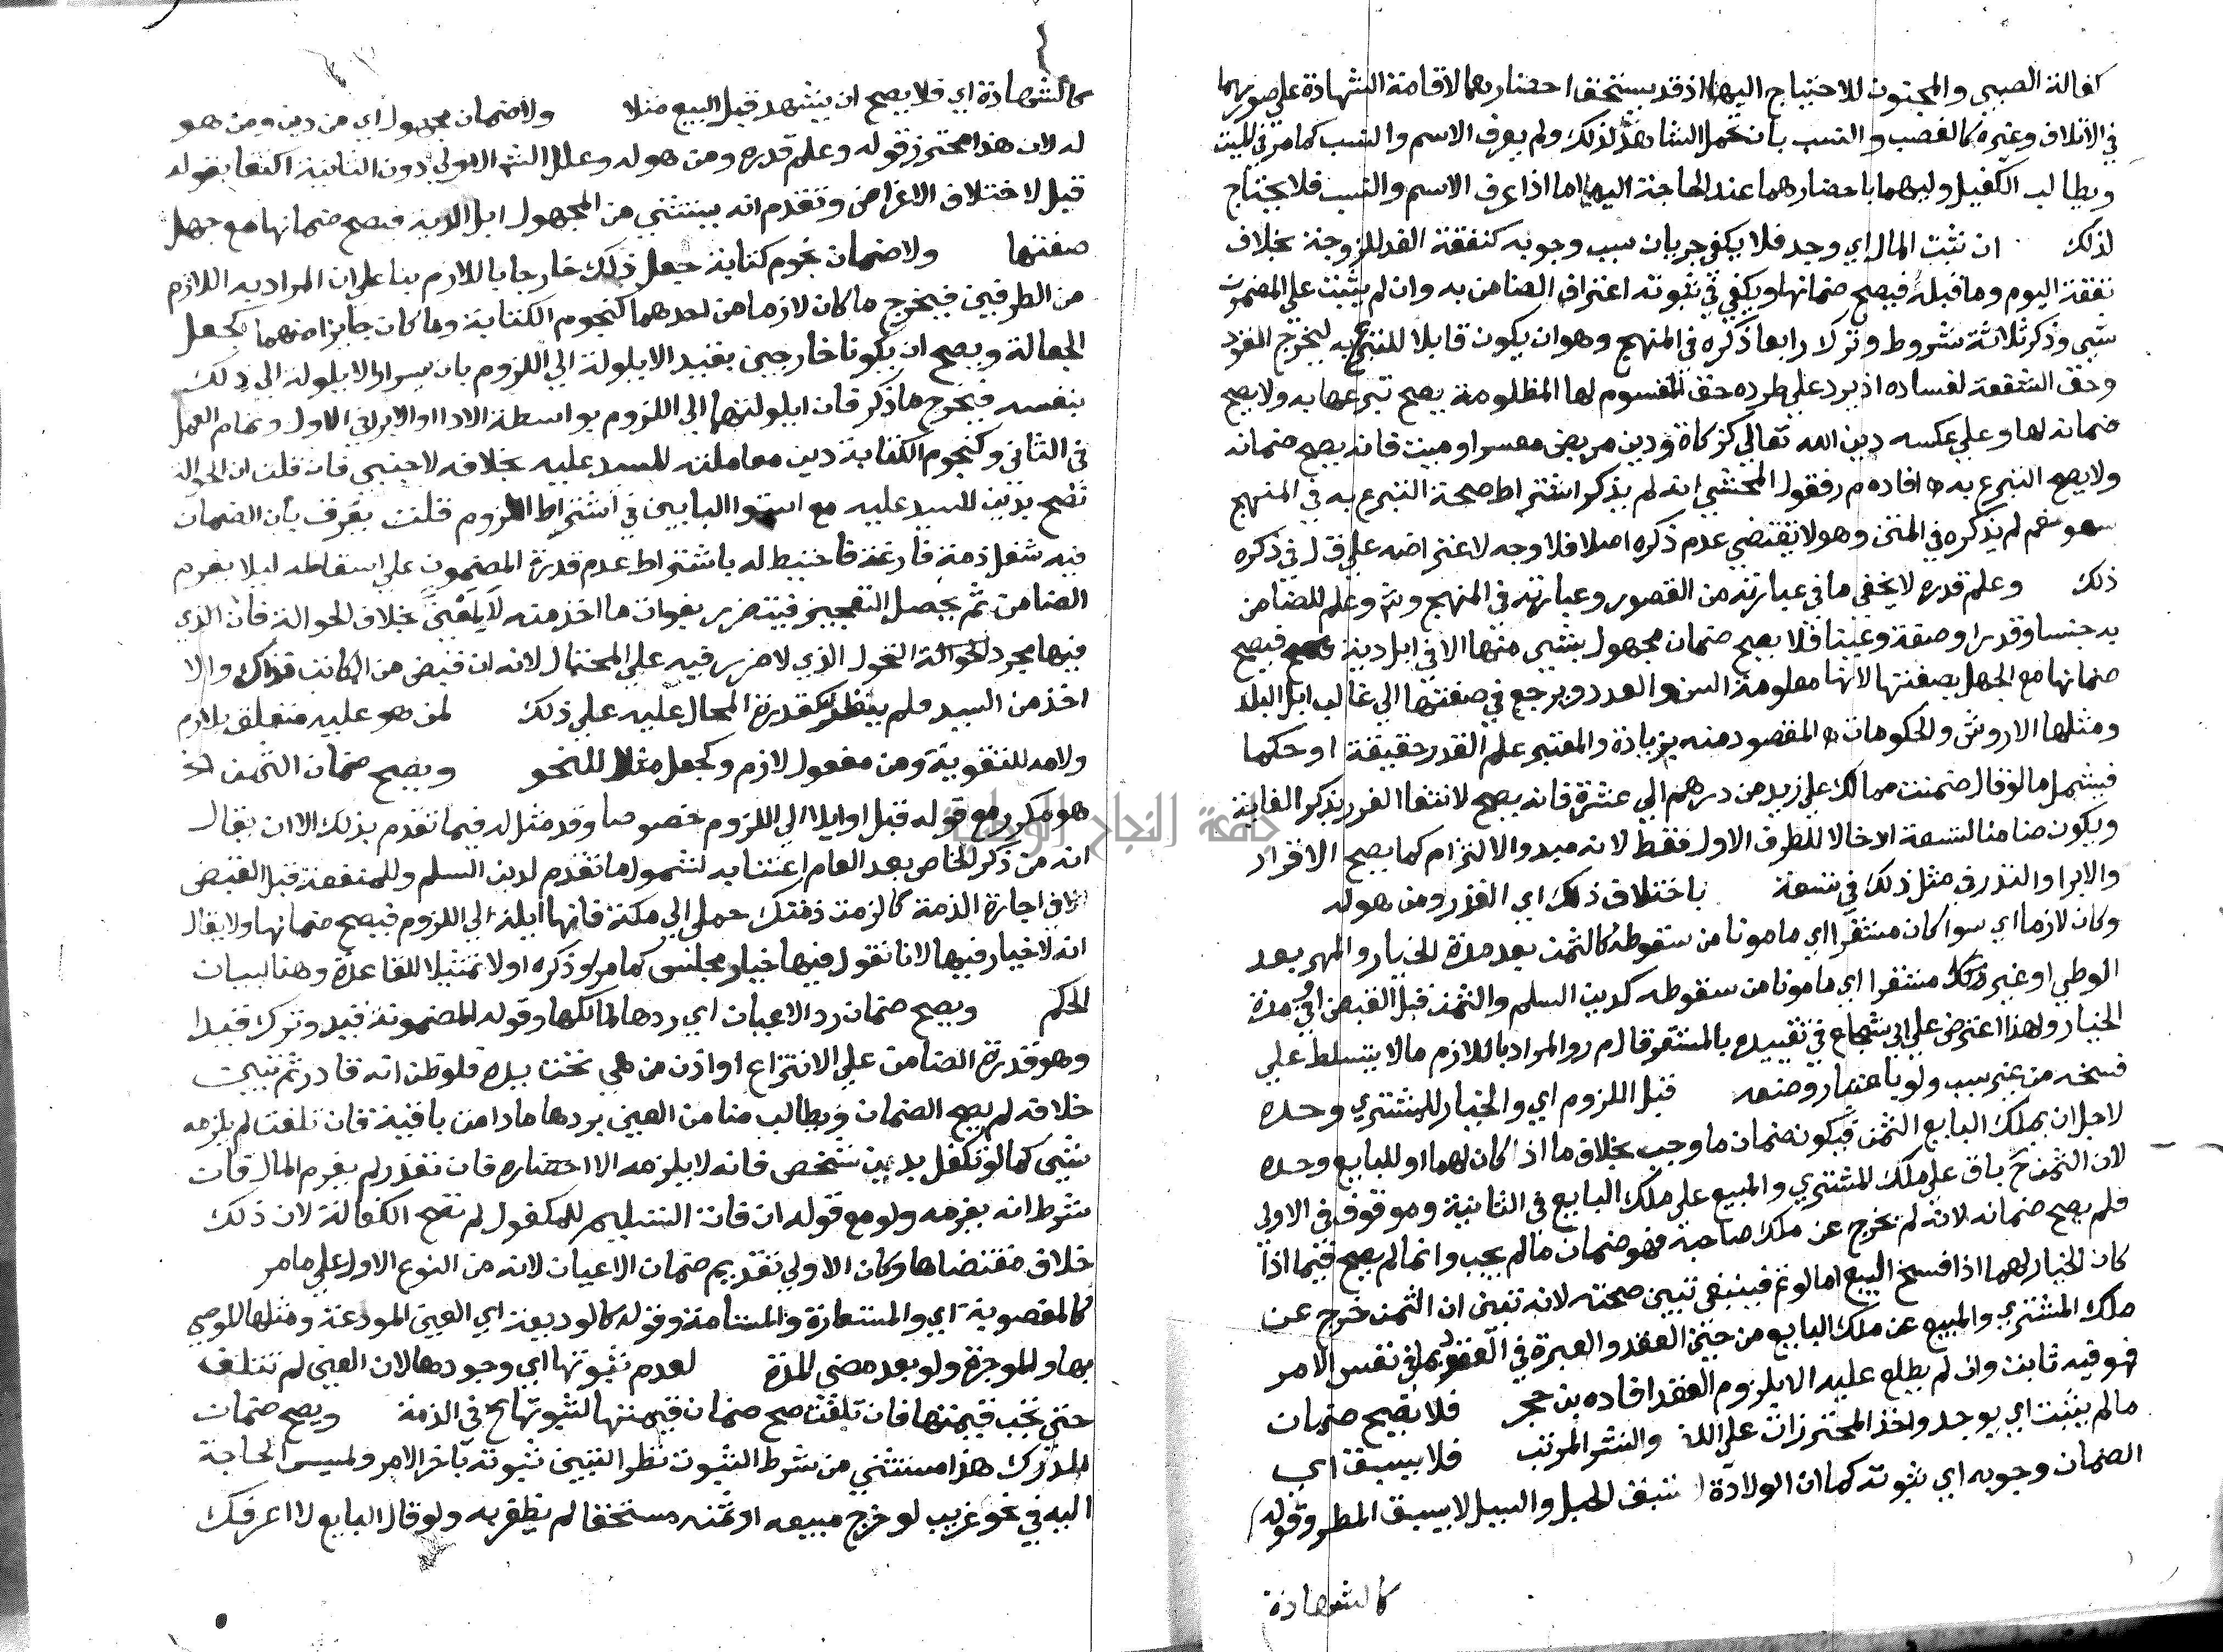 كفالة الصبي والمجنون للاحتياج اليهما اذ قد يستحق احضارهما لاقامة الشهادة على صورتهما
في الاتلاف وغيره كالغصب والنسب بان تحمل الشاهد لذلك ولم يعرف الاسم والنسب كما مر في الميت
ويطالب الكفيل وليهما باحضارهما عند الحاجة اليه اما اذا عرف الاسم والنسب فلا يحتاج
لذلك ان ثبت المال اي وجد فلا يكفي جريان سبب وجوبه كنفقة الغد للزوجة بخلاف
نفقة اليوم وما قبله فيصح ضمانها ويكفي في ثبوته اعتراف الضامن به وان لم يثبت على المضمون
شي وذكر ثلاثة شروط وترك رابعا ذكره في المنهج وهو ان يكون قابلا للتبرع به ليخرج القود
وحق الشفعة لفساده اذ يرد على طرده حق القسم للمظلومة يصح تبرعها به ولا يصح
ضمانه لها وعلى عكسه دين الله تعالى كزكاة ودين مريض معسر او ميت فانه يصح ضمانه
ولا يصح التبرع به افاده م ر فقول المحشي انه لم يذكر اشتراط صحة التبرع به في المنهج
سهو نعم لم يذكره في المتن وهو لا يقتضي عدم ذكره اصلا فلا وجه لاعتراضه على ق ل في ذكره
ذلك وعلم قدره لا يخفى ما في عبارته من القصور وعبارته في المنهج وشم وعلم للضامن
به جنسا وقدرا وصفة وعينا فلا يصح ضمان مجهول بشي منها الا في ابل دية فيصح
ضمانها مع الجهل بصفتها لانها معلومة السن والعدد ويرجع في صفتها الى غالب ابل البلد
ومثلها الاروش والحكومات المقصود منه بزيادة والمعتبر علم القدر حقيقة او حكما
فيشمل ما لو قال ضمنت مما لك على زيد من درهم الى عشرة فانه يصح لانتفا الغرر بذكر الغاية
ويكون ضامنا لتسعة ادخالا للطرف الاول فقط لانه مبدو الالتزام كما يصح الاقرار
والابرا والنذر في مثل ذلك في تسعة باختلاف ذلك اي القدر ومن هو له
وكان لازما اي سوا كان مستقرا اي مامونا من سقوطه كالثمن بعد مدة الخيار والمهر بعد
الوطي او غير مستقرا اي مامونا من سقوطه كدين السلم والثمن قبل القبض او في مدة
الخيار ولهذا اعترض على ابي شجاع في تقييده بالمستقر قال م ر والمراد باللازم ما لا يتسلط على
فسخه من غير سبب ولو باعتبار وضعه قبل اللزوم اي والخيار للمشتري وحده
لاجل ان يملك البايع الثمن فيكون ضمان ما وجب بخلاف ما اذا كان لهما او للبايع وحده
لان الثمن ح باق على ملك المشتري والمبيع على ملك البايع في الثانية وموقوف في الاولى
فلم يصح ضمانه لانه لم يخرج عن ملك صاحبه فهو ضمان ما لم يجب وانما لم يصح فيما اذا
كان الخيار لهما اذا فسخ البيع اما لو تم فينبغي تبين صحته لانه تبين ان الثمن خرج عن
ملك المشتري والمبيع عن ملك البايع من حين العقد والعبرة في العقود بما في نفس الامر
فهو فيه ثابت وان لم يطلع عليه الا بلزوم العقد افاده بن حجر فلا يصح ضمان
ما لم يثبت اي يوجد واخذ المحترزات على اللف والنشر المرتب فلا يسبق اي
الضمان وجوبه اي ثبوته كما ان الولادة لا تسبق الحبل والسيل لا يسبق المطر وقوله
كالشهادة
كالشهادة اي فلا يصح ان يشهد قبل البيع مثلا ولا ضمان مجهول اي من دين ومن هو
له لان هذا محترز قوله وعلم قدره ومن هو له وعلل الش الاولى دون الثانية اكتفا بقوله
قبل لاختلاف الاغراض وتقدم انه يستثني من المجهول ابل الدية فيصح ضمانها مع جهل
صفتها ولا ضمان نجوم كتابة جعل ذلك خارجا باللازم بنا على ان المراد به اللازم
من الطرفين فيخرج ما كان لازما من احدهما كنجوم الكتابة وما كان جايزا منهما كجعل
الجعالة ويصح ان يكونا خارجين بقيد الايلولة الى اللزوم بان يراد الايلولة الى ذلك
بنفسه فيخرج ما ذكر فان ايلولتهما الى اللزوم بواسطة الادا او الابرا في الاول وتمام العمل
في الثاني وكنجوم الكتابة دين معاملته للسيد عليه بخلافه لاجنبي فان قلت ان الحوالة
تصح بدين للسيد عليه مع استوا البابين في اشتراط اللزوم قلت يفرق بان الضمان
فيه شغل ذمة فارغة فاحتيط له باشتراط عدم قدرة المضمون على اسقاطه ليلا يغرم
الضامن ثم يحصل التعجيز فيتضرر بفوات ما اخذ منه بخلاف الحوالة فان الذي
فيها مجرد التحول الذي لا ضرر فيه على المحتال لانه ان قبض من المكاتب فذاك والا
اخذ من السيد فلم ينظر لقدرة المحال عليه على ذلك لمن هو عليه متعلق بلازم
ولامه للتقوية ومن مفعول لازم وكجعل مثلا للنحو ويصح ضمان الثمن الخ
هو مكرر مع قوله قبل او ايلا الى اللزوم خصوصا وقد مثل له فيما تقدم بذلك الا ان يقال
انه من ذكر الخاص بعد العام اعتنا به لشموله ما تقدم لدين السلم وللمنفعة قبل القبض
في اجارة الذمة كالزمت ذمتك حملي الى مكة فانها ايلة الى اللزوم فيصح ضمانها ولا يقال
انه لا خيار فيها لانا نقول فيها خيار مجلس كما مر او ذكره اولا تمثيلا للقاعدة وهنا لبيان
الحكم ويصح ضمان رد الاعيان اي ردها لمالكها وقوله المضمونة قيد وترك قيدا
وهو قدرة الضامن على الانتزاع او اذن من هي تحت يده فلو ظن انه قادر ثم تبين
خلافه لم يصح الضمان ويطالب ضامن العين بردها ما دامت باقية فان تلفت لم يلزمه
شي كما لو تكفل بدين شخص فانه لا يلزمه الا احضاره فان تعذر لم يغرم المال فان
شرط انه يغرمه ولو مع قوله ان فات التسليم للمكفول لم تصح الكفالة لان ذلك
خلاف مقتضاها وكان الاولى تقديم ضمان الاعيان لانه من النوع الاول على ما مر
كالمغصوبة اي والمستعارة والمستامة وقوله كالوديعة اي العين المودعة ومثلها الموصي
بها والموجرة ولو بعد مضي المدة لعدم ثبوتها اي وجودها لان العين لم تتلف
حتى تجب قيمتها فان تلفت صح ضمان قيمتها لثبوتها ح في الذمة ويصح ضمان
الدرك هذا مستثني من شرط الثبوت نظرا لتبين ثبوته باخر الامر ولمسيس الحاجة
اليه في نحو غريب لو خرج مبيعه او ثمنه مستحقا لم يظفر به ولو قال البايع لا اعرفك
جامعة النجاح الوطنية